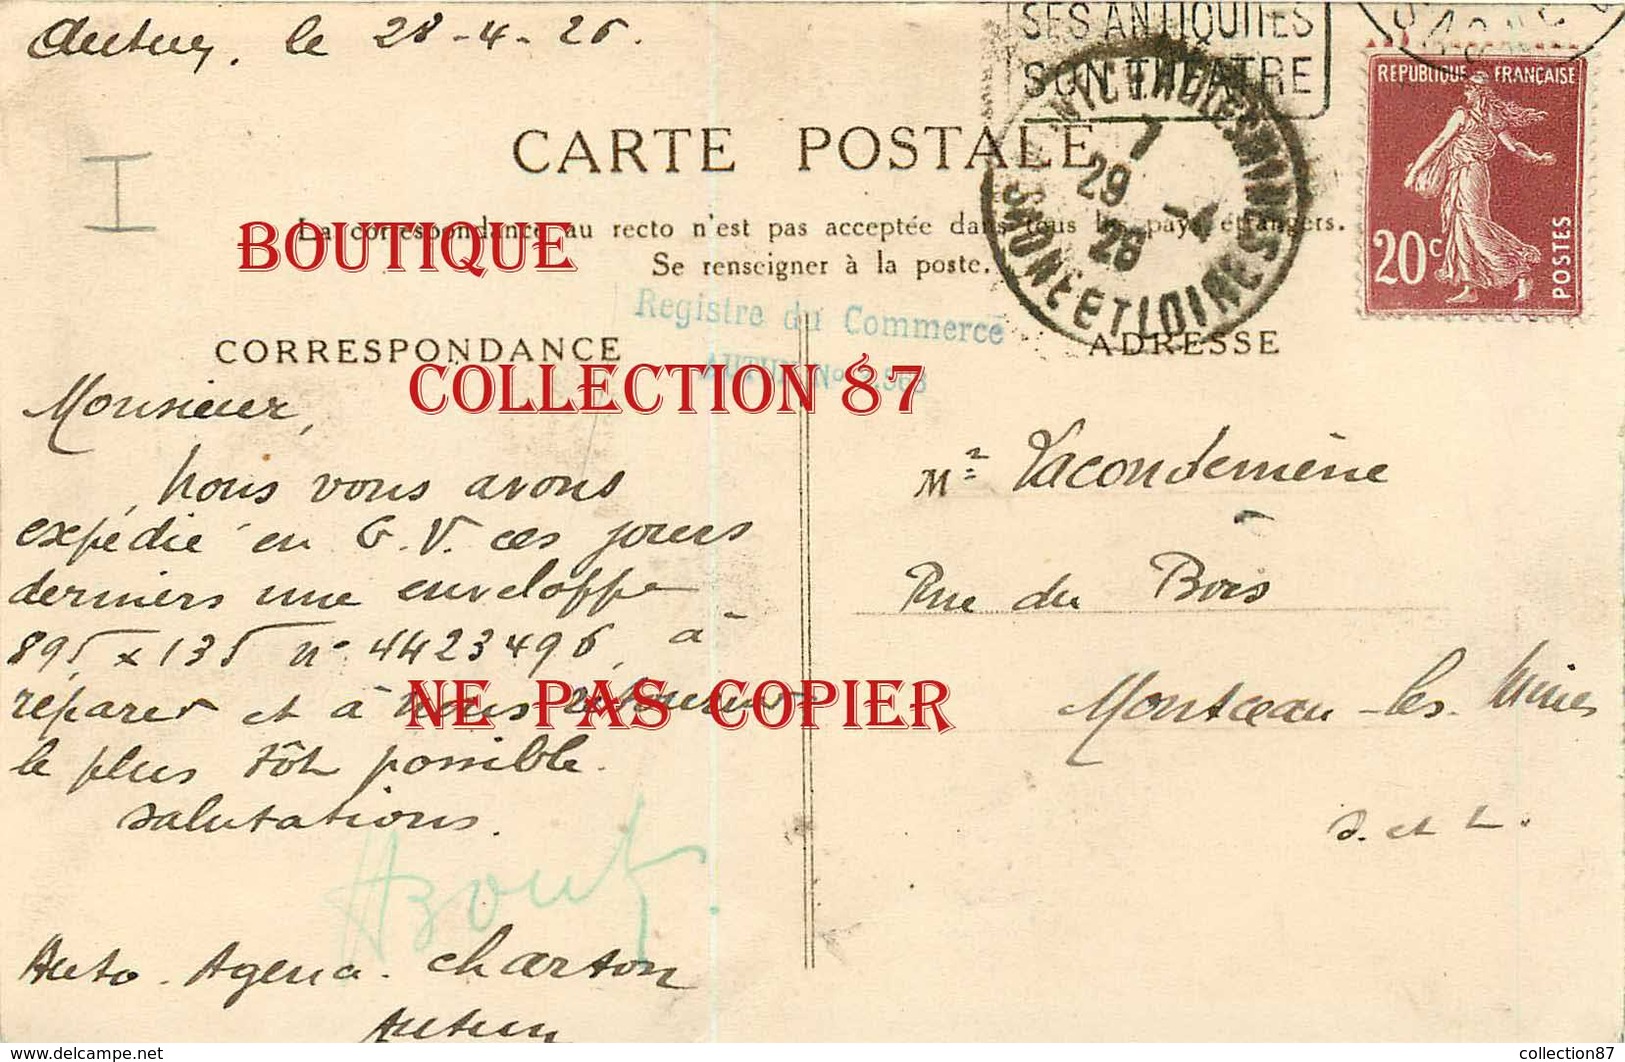 Autun, le 28-4-26.
SES ANTIQUITES
SON THEATRE
REPUBLIQUE FRANÇAISE
20c
POSTES
CARTE POSTALE
7
29 -4
26
SAONE ET LOIRE
I
La correspondance au recto n'est pas acceptée dans tous les pays étrangers.
Se renseigner à la poste.
BOUTIQUE
Registre du Commerce
AUTUN No
CORRESPONDANCE
ADRESSE
COLLECTION 87
Monsieur,
Nous vous avons
expédié en G.V. ces jours
derniers une enveloppe
895 x 135 n° 4423496, à
réparer et à nous retourner
le plus tôt possible.
Salutations.
NE PAS COPIER
Auto. Agence. Charton
Autun
Mr Lacondemine
Rue du Bois
Montceau-les-Mines
S. et L.
www.delcampe.net
collection87